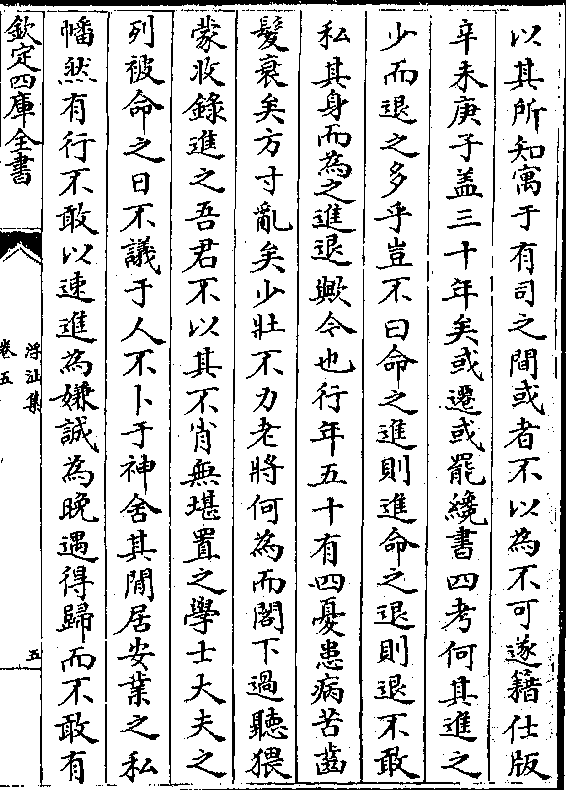 以其所知寓于有司之間或者不以為不可遂籍仕版
辛未庚子盖三十年矣或遷或罷纔書四考何其進之
少而退之多乎豈不曰命之進則進命之退則退不敢
私其身而為之進退歟今也行年五十有四憂患病苦齒
髮衰矣方寸亂矣少壯不力老將何為而閣下過聽猥
蒙收錄進之吾君不以其不肖無堪置之學士大夫之
列被命之日不議于人不卜于神舍其閒居安業之私
幡然有行不敢以速進為嫌誠為晚遇得歸而不敢有
欽定四庫全書
浮沚集
卷五
五